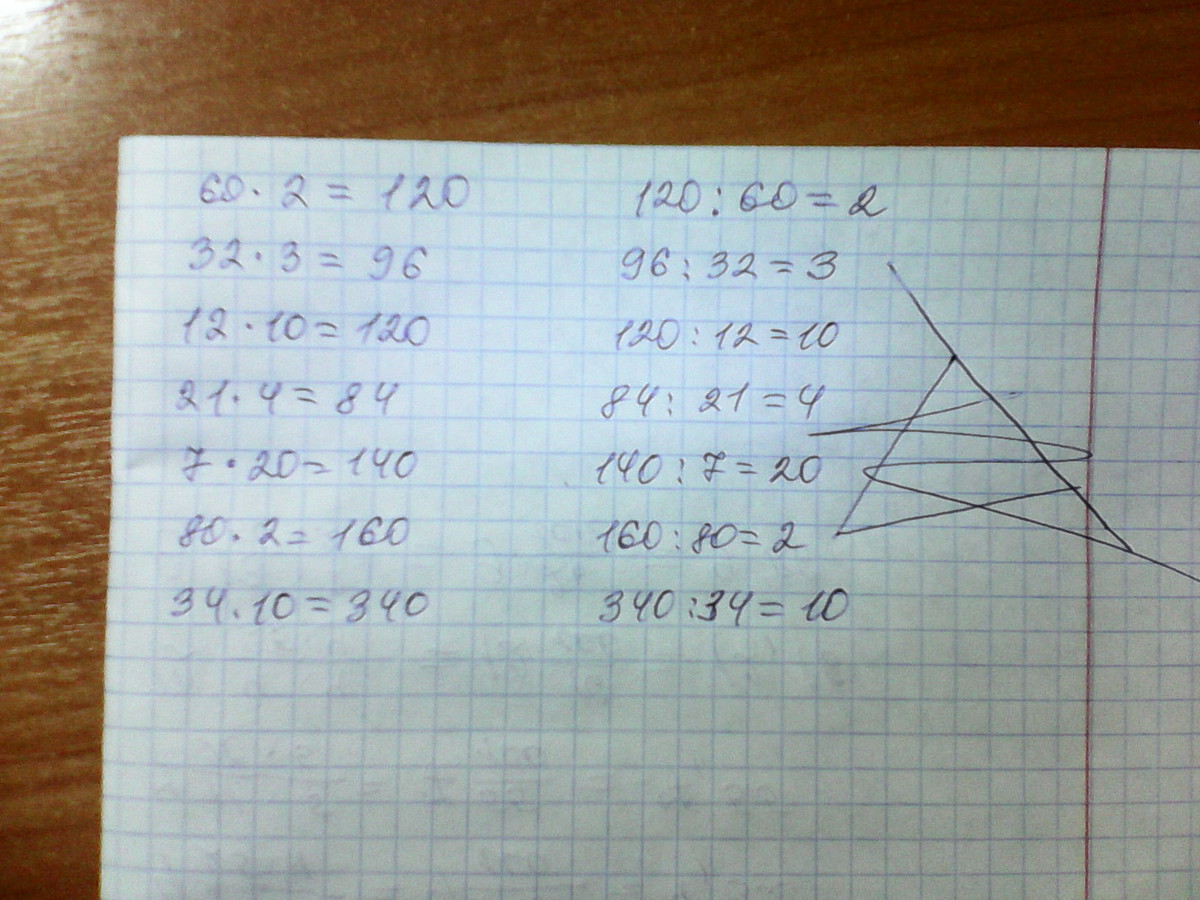 60 · 2 = 120 120 : 60 = 2
32 · 3 = 96 96 : 32 = 3
12 · 10 = 120 120 : 12 = 10
21 · 4 = 84 84 : 21 = 4
7 · 20 = 140 140 : 7 = 20
80 · 2 = 160 160 : 80 = 2
34 · 10 = 340 340 : 34 = 10